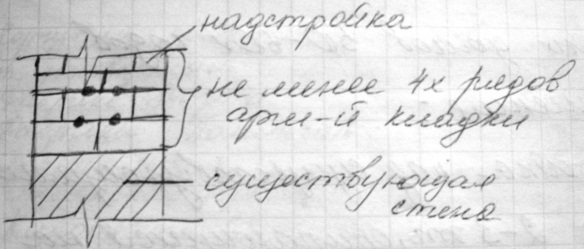 надстройка
не менее 4х рядов
арм-й кладки
существующая
стена